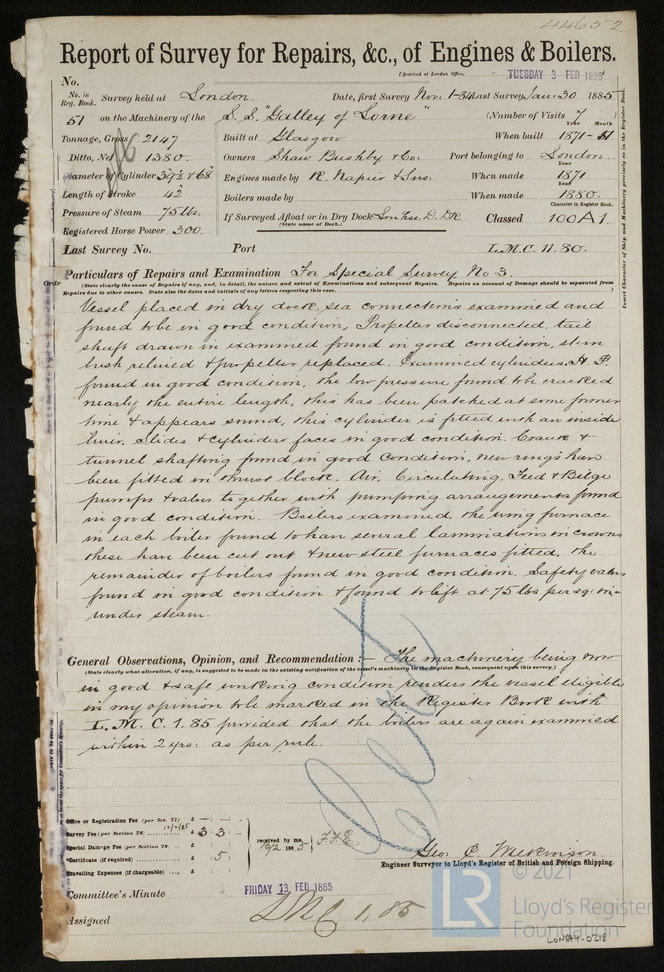 44652
Report of Survey for Repairs, &c., of Engines & Boilers.
(Received at London Office, TUESDAY 3 FEB 1885
No.
No. in Reg. Book. Survey held at London. Date, first Survey Nov. 1-84 Last Survey Jan: 30 1885
51 on the Machinery of the S.S. "Galley of Lorne" (Number of Visits 7
Year Month
Tonnage, Gross 2147 Built at Glasgow When built 1871-11
Ditto, Net 1380. Owners Shaw Bushby & Co: Port belonging to London.
Year
Diameter of Cylinder 39½ & 68" Engines made by R. Napier & Sons When made 1871
Year
Length of Stroke 42" Boilers made by When made 1880.
Character in Register Book.
Pressure of Steam 75 lbs. If Surveyed Afloat or in Dry Dock D. Dk. Classed 100A1.
(State name of Dock.)
Registered Horse Power 300.
Last Survey No. Port L.M.C. 11.80.
Particulars of Repairs and Examination For Special Survey No 3.
(State clearly the cause of Repairs if any, and, in detail, the nature and extent of Examinations and subsequent Repairs. Repairs on account of Damage should be separated from
Repairs due to other causes. State also the dates and initials of any letters respecting this case.)
Vessel placed in dry dock, sea connections examined and
found to be in good condition, Propeller disconnected, tail
shaft drawn in examined found in good condition, stern
bush relined & propeller replaced. Examined cylinders, H.P.
found in good condition, the low pressure found to be cracked
nearly the entire length, this has been patched at some former
time & appears sound, this cylinder is fitted with an inside
liner. Slides & cylinder faces in good condition. Crank &
tunnel shafting found in good condition, new rings have
been fitted in thrust block. Air, Circulating, Feed & Bilge
pumps & valves together with pumping arrangements found
in good condition. Boilers examined, the wing furnace
in each boiler found to have several laminations in crowns
these have been cut out & new steel furnaces fitted, the
remainder of boilers found in good condition. Safety valves
found in good condition & found to lift at 75 lbs per sq: in=
under steam.
General Observations, Opinion, and Recommendation :— The machinery being now
(State clearly what alteration, if any, is suggested to be made in the existing notification of the vessel's machinery in the Register Book, consequent upon this survey.)
in good & safe working condition renders the vessel eligible
in my opinion to be marked in the Register Book with
L.M.C. 1.85 provided that the boilers are again examined
within 2 yrs: as per rule.
Office or Registration Fee (per Sec. 27) £ — : — :
Survey Fee (per Section 28) £ 3 : 3 :
Special Damage Fee (per Section 28) £ : :
Certificate (if required) £ : 5 :
Travelling Expenses (if chargeable) £ : :
received by me,
16/2 1885
Engineer Surveyor to Lloyd's Register of British and Foreign Shipping.
Committee's Minute FRIDAY 13 FEB 1885
Assigned LMC 1.85
© 2021
LR
Lloyd's Register
Foundation
LON844-0218
Insert Character of Ship and Machinery precisely as in the Register Book.